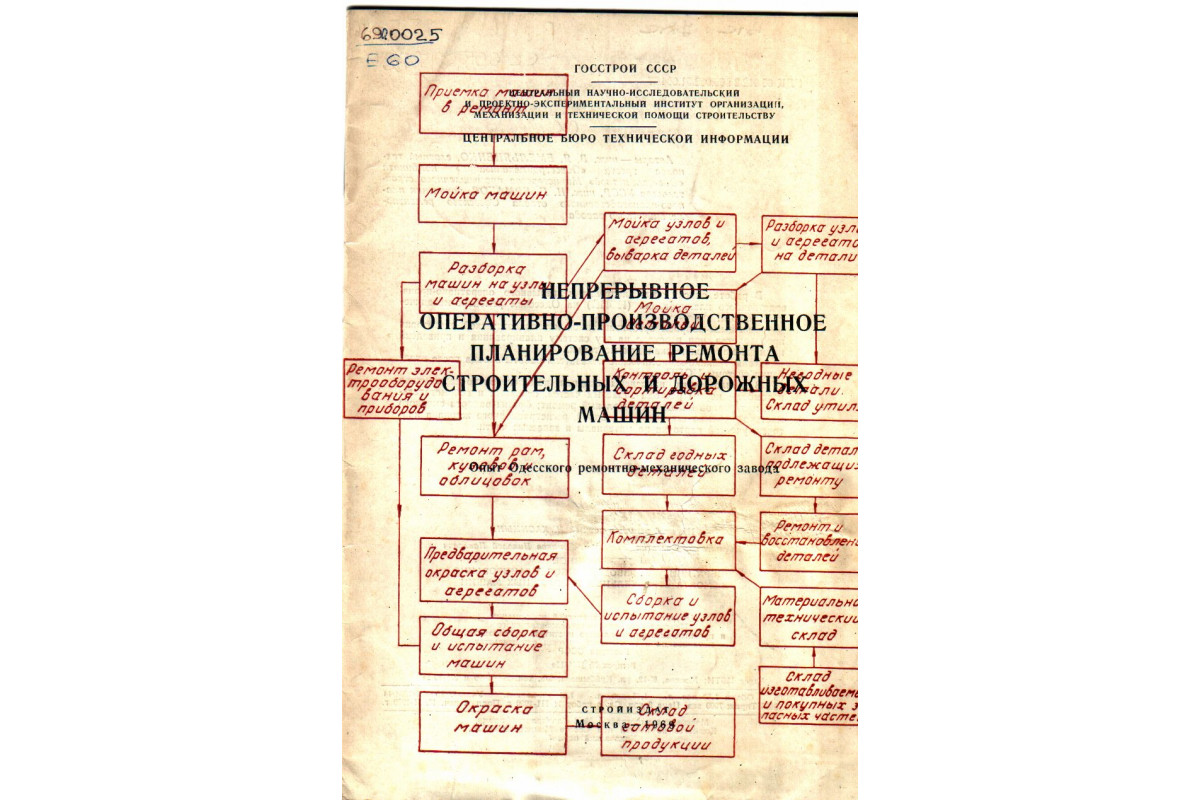 6920025
Е 60
ГОССТРОЙ СССР
ЦЕНТРАЛЬНЫЙ НАУЧНО-ИССЛЕДОВАТЕЛЬСКИЙ
И ПРОЕКТНО-ЭКСПЕРИМЕНТАЛЬНЫЙ ИНСТИТУТ ОРГАНИЗАЦИИ,
МЕХАНИЗАЦИИ И ТЕХНИЧЕСКОЙ ПОМОЩИ СТРОИТЕЛЬСТВУ
ЦЕНТРАЛЬНОЕ БЮРО ТЕХНИЧЕСКОЙ ИНФОРМАЦИИ
НЕПРЕРЫВНОЕ
ОПЕРАТИВНО-ПРОИЗВОДСТВЕННОЕ
ПЛАНИРОВАНИЕ РЕМОНТА
СТРОИТЕЛЬНЫХ И ДОРОЖНЫХ
МАШИН
Опыт Одесского ремонтно-механического завода
СТРОЙИЗДАТ
Москва—1966
Приемка машин
в ремонт
Мойка машин
Разборка
машин на узлы
и агрегаты
Ремонт элек-
трооборудо
вания и
приборов
Ремонт рам,
кузовов и
облицовок
Предварительная
окраска узлов и
агрегатов
Общая сборка
и испытание
машин
Окраска
машин
Мойка узлов и
агрегатов,
выварка деталей
Мойка
деталей
Контроль и
сортировка
деталей
Склад годных
деталей
Комплектовка
Сборка и
испытание узлов
и агрегатов
Склад
готовой
продукции
Разборка узл
и агрегато
на детали
Негодные
детали.
Склад утил
Склад детал
подлежащих
ремонту
Ремонт и
восстановлени
деталей
Материально
технический
склад
Склад
изготавливаемы
и покупных з
пасных частей